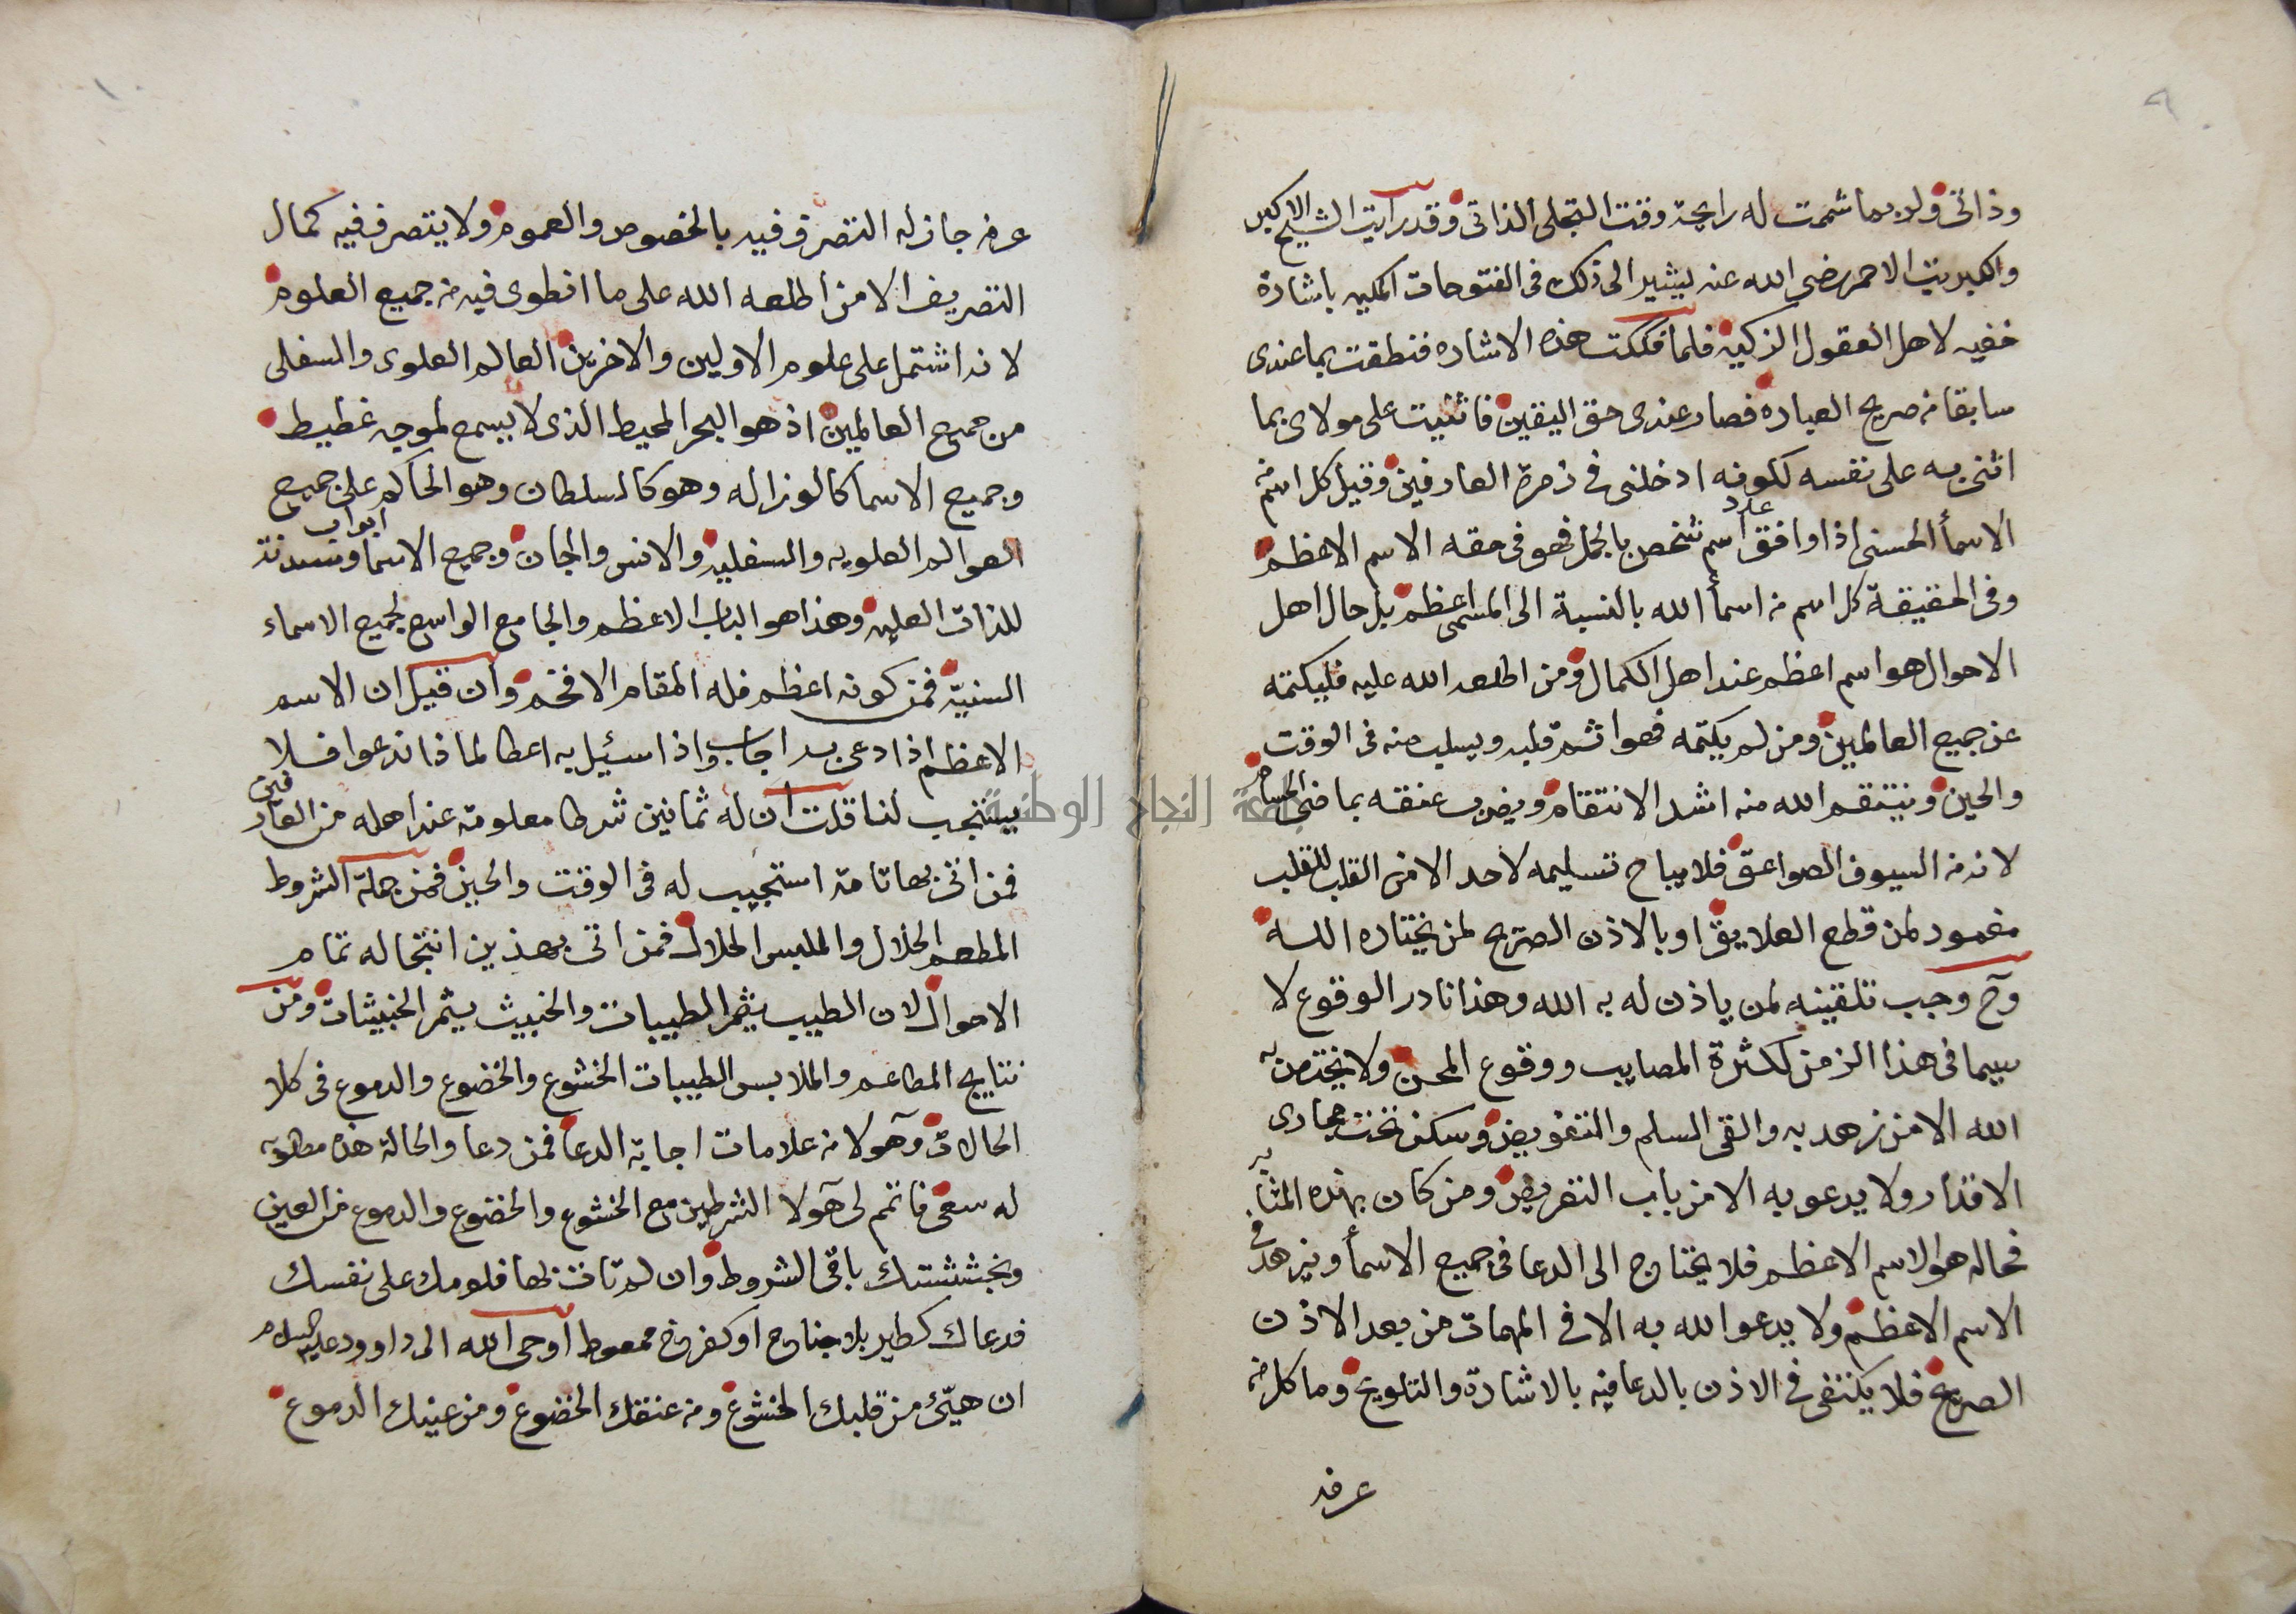 ٩
وذاتى ولربما شممت له رايحة وقت التجلى الذاتى وقد رايت الشيخ الاكبر
والكبريت الاحمر رضى الله عنه يشير الى ذلك فى الفتوحات المكيه باشارة
خفيه لاهل العقول الزكيه فلما فككت هذه الاشاره فنطقت بما عندى
سابقا من صريح العباره فصار عندى حق اليقين فاثنيت على مولاى بما
اثنى به على نفسه لكونه ادخلنى فى زمرة العارفين وقيل كل اسم من
الاسمأ الحسنى اذا وافق عدد اسم شخص بالجمل فهو فى حقه الاسم الاعظم
وفى الحقيقة كل اسم من اسمأ الله بالنسبة الى المسمى اعظم بل حال اهل
الاحوال هو اسم اعظم عند اهل الكمال ومن اطلعه الله عليه فليكتمه
عن جميع العالمين ومن لم يكتمه فهو اثم قلبه ويسلب منه فى الوقت
والحين وينتقم الله منه اشد الانتقام ويضرب عنقه بماضى الحسام
لانه من السيوف الصواعق فلا يباح تسليمه لاحد الا من القلب للقلب
مغمود لمن قطع العلايق او بالاذن الصريح لمن يختاره الله
وح وجب تلقينه لمن ياذن له به الله وهذا نادر الوقوع لا
سيما فى هذا الزمن لكثرة المصايب ووقوع المحن ولا يختص به
الله الا من زهد به والقى السلم والتفويض وسكن تحت مجارى
الاقدار ولا يدعو به الا من باب التفريض ومن كان بهذه المثابه
فحاله هو الاسم الاعظم فلا يحتاج الى الدعا فى جميع الاسمأ ويزهد فى
الاسم الاعظم ولا يدعو الله به الا فى المهمات من بعد الاذن
الصريح فلا يكتفى فى الاذن بالدعا فيه بالاشارة والتلويح وما كل من
عرفه
عرفه جاز له التصرف فيه بالخصوص والعموم ولا يتصرف فيه كمال
التصريف الا من اطلعه الله على ما انطوى فيه من جميع العلوم
لانه اشتمل على علوم الاولين والاخرين العالم العلوى والسفلى
من جميع العالمين اذ هو البحر المحيط الذى لا يسمع لموجه غطيط
وجميع الاسما كالوزرا له وهو كالسلطان وهو الحاكم على جميع
العوالم العلويه والسفليه والانس والجان وجميع الاسما ابواب وسدنة
للذات العليه وهذا هو الباب الاعظم والجامع الواسع لجميع الاسماء
السنيّه فمن كونه اعظم فله المقام الافخم وان قيل ان الاسم
الاعظم اذا دعى به اجاب واذا سئيل به اعطا لماذا ندعوا فلا
يستجب لنا قلت ان له ثمانين شرطا معلومة عند اهله من العارفين
فمن اتى بها تامة استجيب له فى الوقت والحين فمن جملة الشروط
المطعم الحلال والملبس الحلال فمن اتى بهذين انتجا له تمام
الاحوال لان الطيب يثمر الطيبات والخبيث يثمر الخبيثات ومن
نتايج المطاعم والملابس الطيبات الخشوع والخضوع والدموع فى كلا
الحالات وهولا من علامات اجابة الدعا فمن دعا والحالة هذه مطلوبه
له سعى فاتمم لى هولا الشرطين مع الخشوع والخضوع والدموع من العين
باقى الشروط وان لم تات بها فلومك على نفسك
فدعاك كطير بلا جناح او كفروخ ممعوط اوحى الله الى داوود عليه السلام
ان هيّئ من قلبك الخشوع ومن عنقك الخضوع ومن عينك الدموع
جامعة النجاح الوطنية